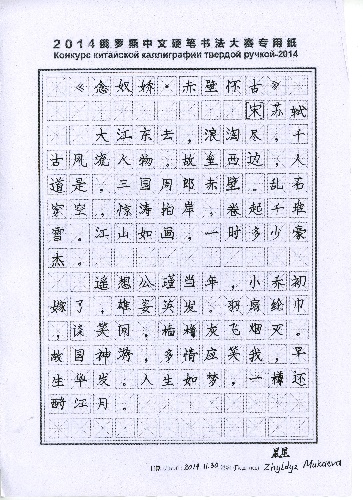 2014俄罗斯中文硬笔书法大赛专用纸
Конкурс китайской каллиграфии твердой ручкой-2014
《念奴娇·赤壁怀古》
[宋]苏轼
大江东去，浪淘尽，千
古风流人物，故垒西边，人
道是，三国周郎赤壁。乱石
穿空，惊涛拍岸，卷起千堆
雪。江山如画，一时多少豪
杰。
遥想公瑾当年，小乔初
嫁了，雄姿英发。羽扇纶巾
，谈笑间，樯橹灰飞烟灭。
故国神游，多情应笑我，早
生华发。人生如梦，一樽还
酹江月。
2014 11.30 Zhyldyz Mukaeva